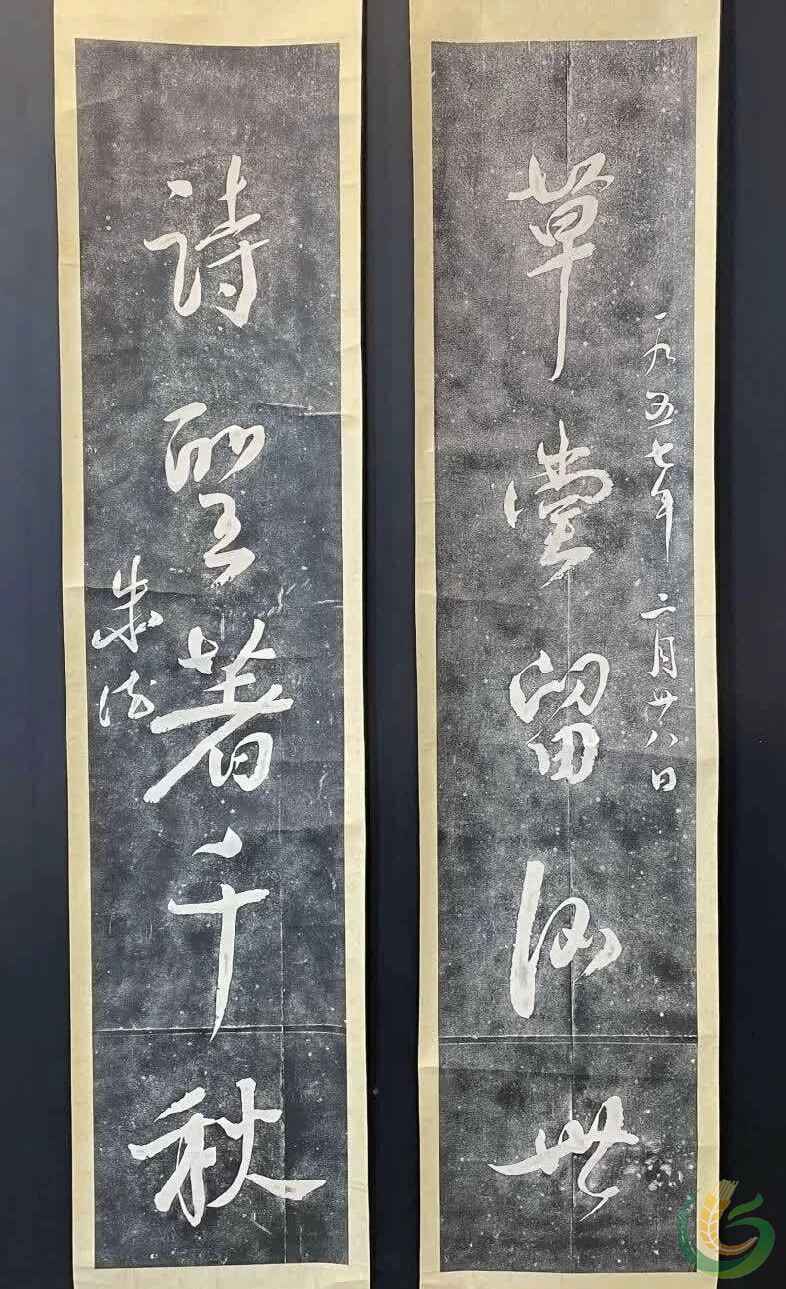 一九五七年二月廿八日
草堂留後世
詩聖著千秋
朱德